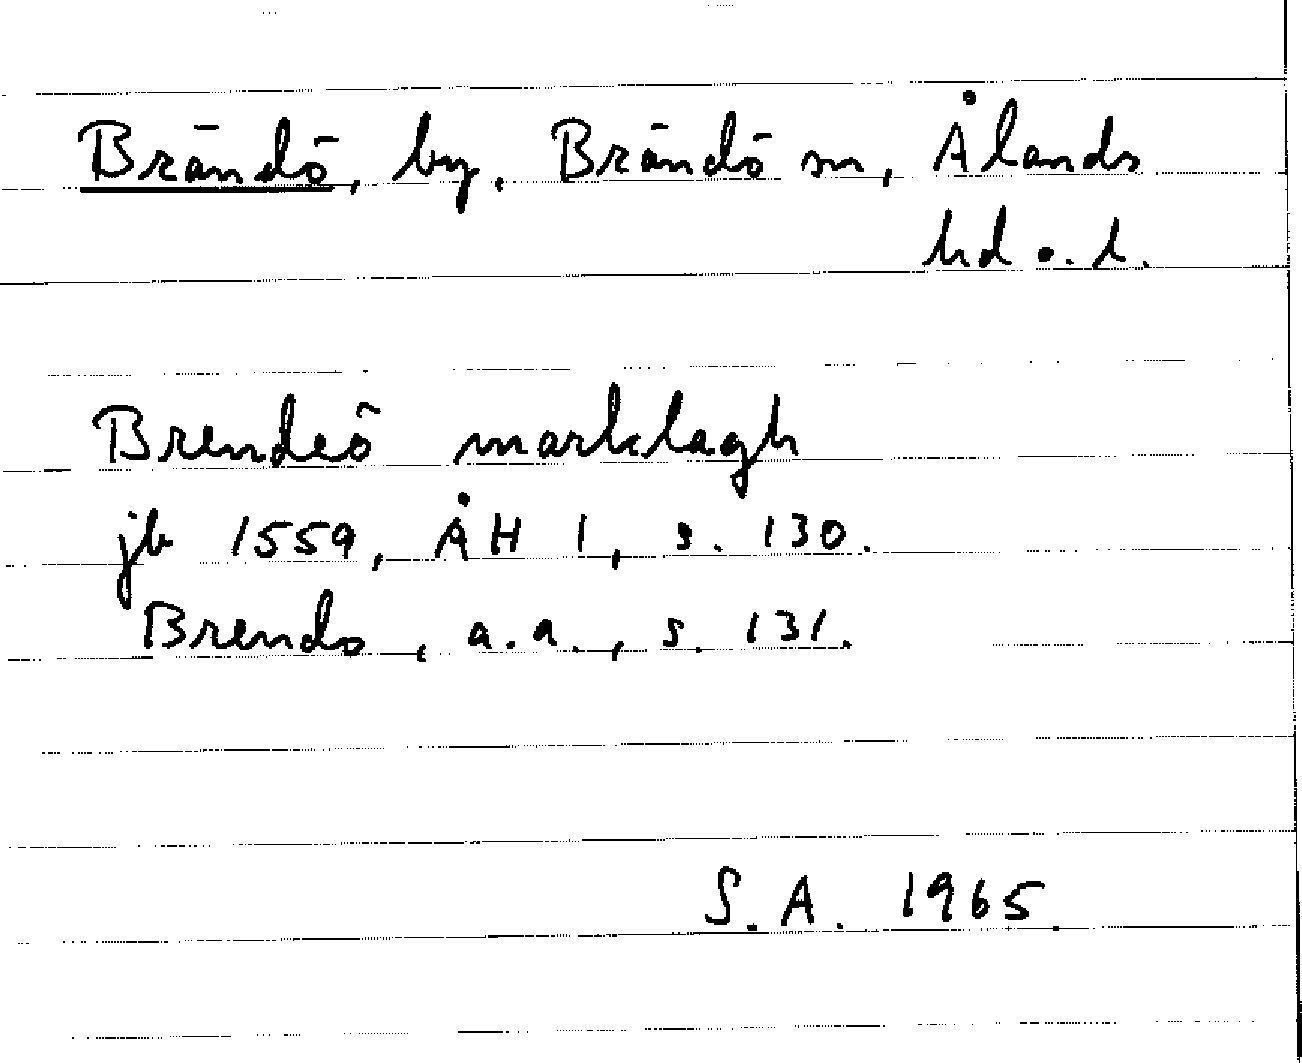 Brändö, by, Brändö sn, Ålands
hd o. l.
Brendeö marklagh
jb 1559, ÅH 1, s. 130.
Brendo, a.a., s. 131.
S.A. 1965.